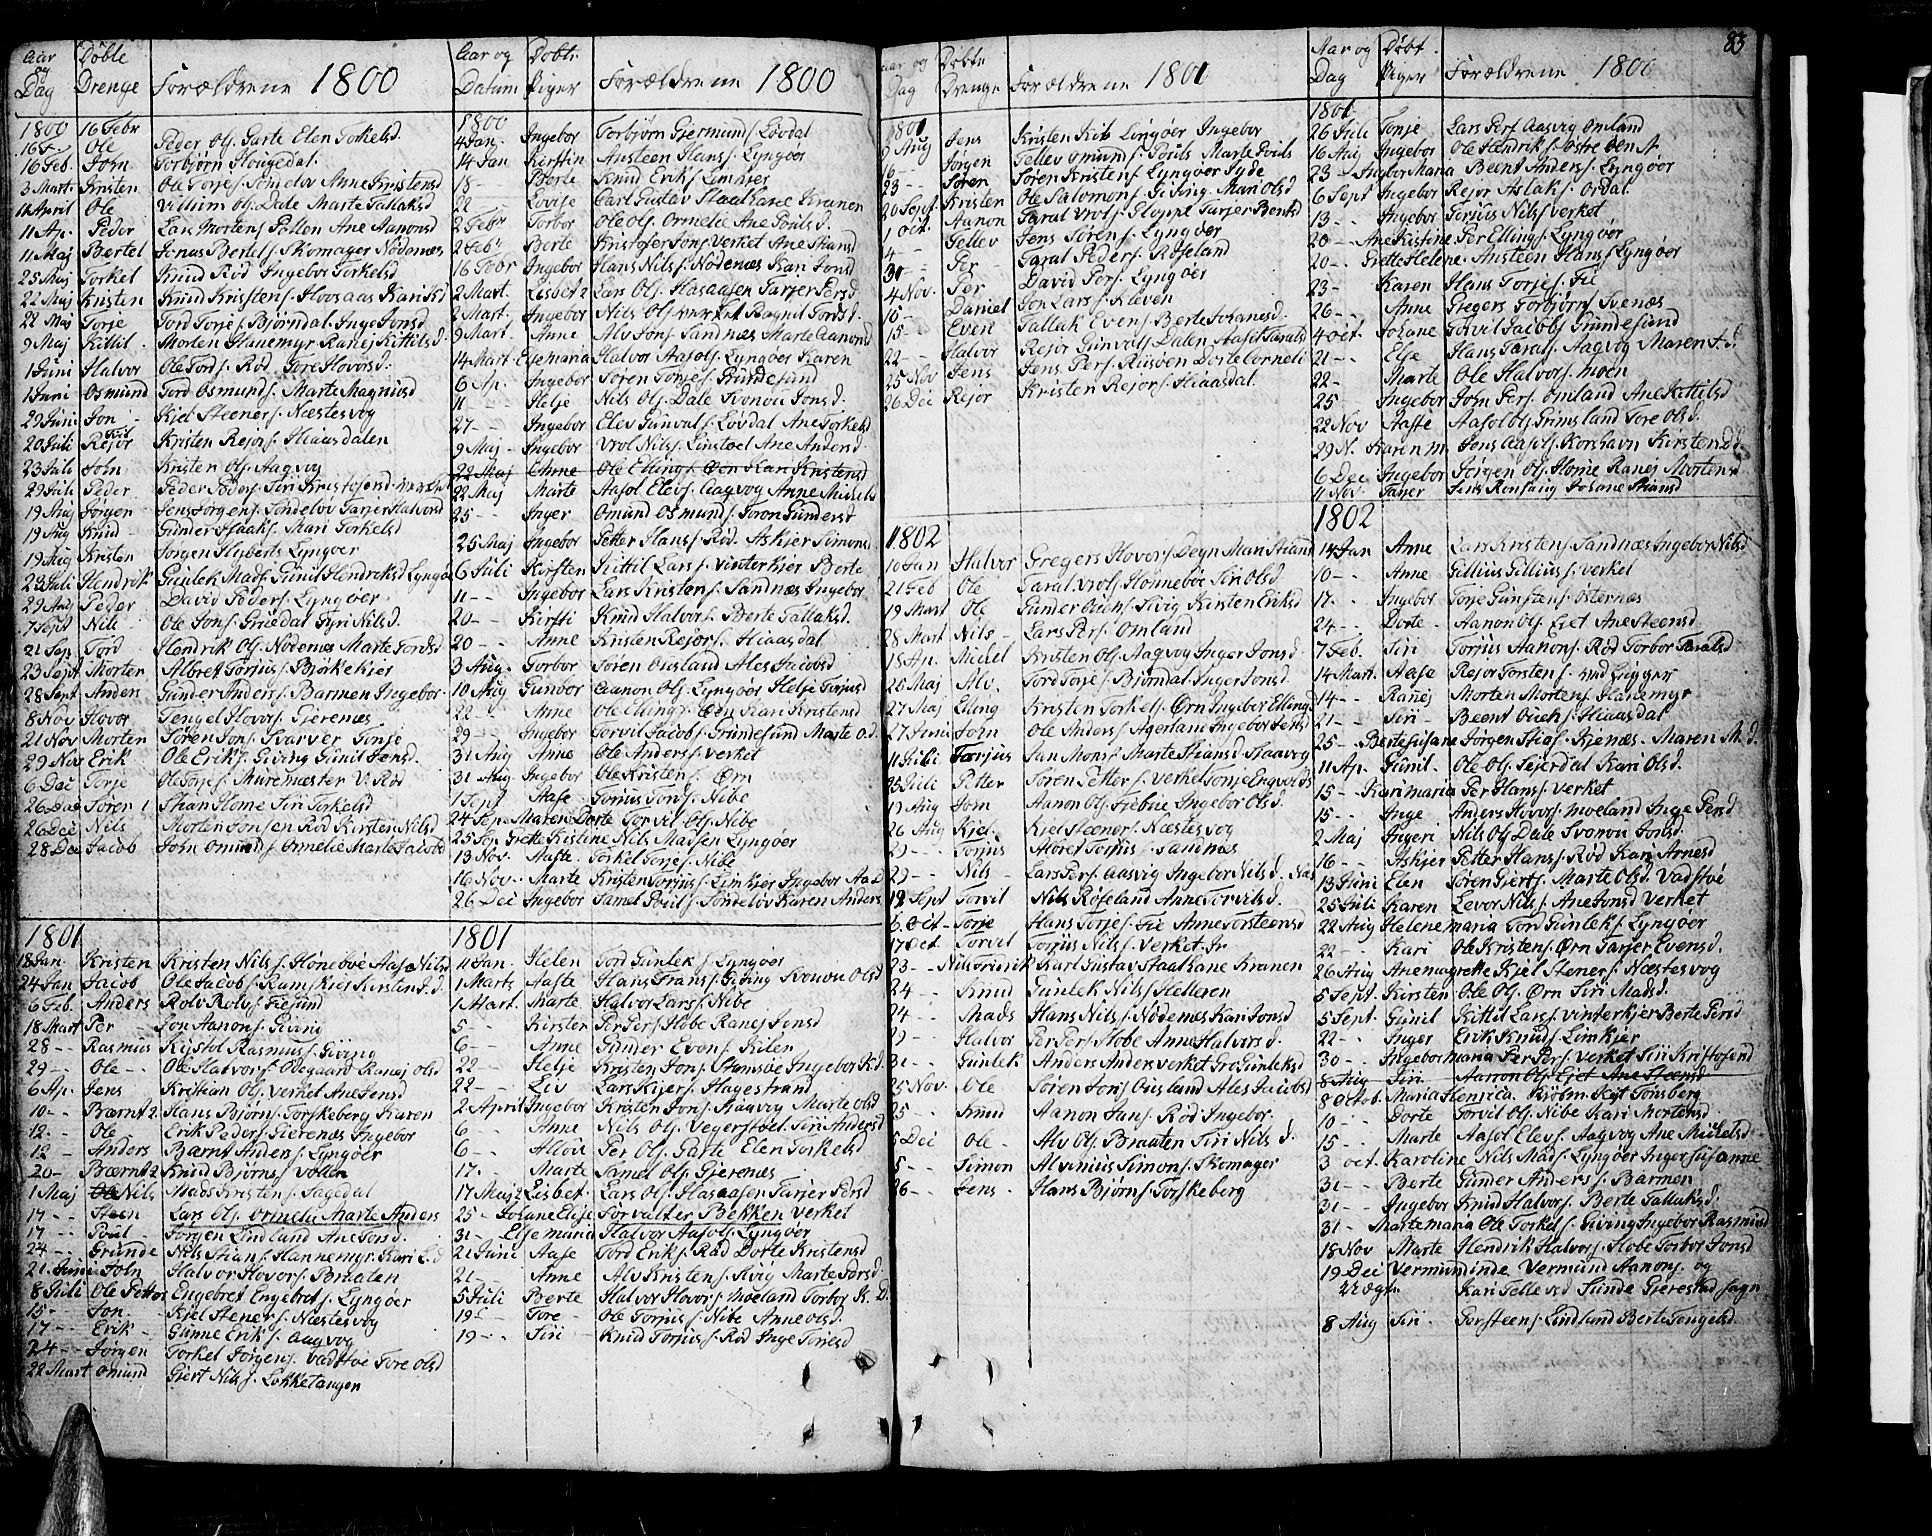 Aar og Dag Døbte Drenge Forældrene 1800
1800 16 Febr
16 F. Ole Peder Ols. Garte Elen Torkelsd.
16 Feb. John Torbjørn Hougedal.
3 Mart. Kristen Ole Torjes. Søndeløv Ane Kristensd
11 April Ole Villum Ols. Dale Marte Tallaksd
11 Ap. Peder Lars Mortens. Aanonsd
11 Maj Bertel Jonas Bertels. Skomager Nødenæs
25 Maj Torkel Knud Rød Ingebor Torkelsd
22 Maj Kristen Knud Kristens. Hovsaas Kari
22 Maj Torje Tord Torjes. Bjørndal Inge Jonsd
9 Maj Kittil Morten Hanemyr Ranej Kittilsd.
1 Juni Halvor Ole Tords. Rød Tore Hovorsd.
1 Juni Osmund Tord Osmunds. Marte Magnusd
29 Juni Jon Kjel Steners. Næstesvog
20 Juli Rejor Kristen Rejors. Hiaasdalen
23 Juli John Kristen Ols. Aagvog
29 Juli Peder Peder Peders. Siri Kristofersd.
19 Maj Jørgen Jens Jørgens. Søndeløv Tarjer Halvorsd
19 Aug Knud Gunder Isaaks. Mari Torkelsd
19 Aug Kristen Jørgen Heyberts Lyngøer
23 Juli Hendrik Gunlek Mads. Gunil Hendriksd Lyngøer
29 Aug Peder David Peders. Lyngøer
7 Sept Nils Ole Jons. Gryri Nilsd.
21 Sep. Tord Hendrik Ols. Nødenæs Marte Tordsd
23 Sept Morten Albret Torjus. Bjørkekjer
28 Sept Anders Gunder Anders. Barmen Ingebor
8 Nov Hovor Tengel Hovors. Gjerenæs
21 Nov Morten Søren Jons. Svarver Tonje
29 Nov Erik Ole Eriks. Giving Gunil Jensd.
6 Dec Torje Ole Torjes. Muremæster V. Rød
26 Dec Søren Stian Home Siri Torkelsd
26 Dec Nils Morten Jonsen Rød Kirsten Nilsd
28 Dec Jacob John Omunds. Ormelie Marte Jacobsd
1801
18 Jan Kristen Kristen Nils. Hønebøe Aase Nilsd
24 Jan Jacob Ole Jacobs. Ramskjer Kirsten
6 Feb. Anders Rolv Rolvs. Fiesund
18 Mart Per Jon Aanons. Giving
28 - - Rasmus Kristof Rasmus. Giving
29 - - Ole Ole Halvors. Olegaard Ranej Olsd
6 Ap. Jens Kristian Ols. Verket Ane Jensd
10 - - Bærnt 2 Hans Bjørns. Torskeberg Karen
12 - - Ole Erik Peders. Gjerenæs Ingebor
12 - Anders Bærnt Anders. Lyngøer
20 - Bærnt 2 Knud Bjørns. Vollen
1 Maj Nils Mads Kristens. Sagedal
17 - - Steen Lars Ols. Ormelie Marte Anders
17 - - Poul Jørgen Lindland Ane Jonsd.
24 - - Grunde Nils Stians. Hannemyr. Kari
21 Juni John Halvor Hovors. Braaten
8 Juli Ole Petter Engebret Engebrets. Lyngøer
15 - Jon. Kjel Steners. Næstesvog
17 - - Erik Gunne Eriks. Aagvog
24 - - Jørgen Torkel Jørgens. Vadstøe Tore Olsd
22 Mart Omund Gjert Nils. Løkketangen
Aar og Datum Døbte Piger Forældrene 1800
1800
4 Jan. Ingebor Torbjørn Gjermunds. Løvdal
14 Jan Kirstin Ansteen Hans. Lyngøer
18 - - Berte Knud Eriks. Limkjer
22 - - Lovise Carl Gustav Staalkane Kranen
2 Febr Torbor Ole Ols. Ormelie Ane Poulsd.
2 Feb. Berte Kristofer Jons. Verket Ane Hansd
16 Febr Ingebor Hans Nils. Nødenæs Kari Jonsd
2 Mart. Lisbet 2 Lars Ols. Hasaasen Tarjer Persd
2 Mart. Ingebor Nils Ols. Verket Ragnil Tordsd.
9 Mart Anne Alv Jons. Sandnæs Marte Aanonsd
14 Mart Else Maria Halvor Aasols. Lyngøer Karen
6 Ap. Ingebor Søren Torjes. Grundesund
11 - - Helje Nils Ols. Dale Tvonou Jonsd.
27 - - Ingebor Elev Gunvals. Løvdal Ane Torkelsd
9 Maj - Ingebor Vrol Nils. Limstoel Ane Andersd
22 Maj Anne Ole Ellings. Øen Kari Kristensd
22 Maj Marte Aasol Elevs. Aagvog Anne Mickelsd
25 - - Inger Omund Osmunds. Goron Gundersd
25 Maj Ingebor Petter Hans. Rød. Askjer Simonsd
6 Juli Kirsten Kittil Lars. Vinterkjer Berte
11 - - Ingebor Lars Kristens. Sandnæs Ingebor
20 - - Kirsti Knud Halvors. Berte Tallaksd.
20 - - Anne Kristen Rejors. Hiaasdal
3 Aug. Gorbor Søren Ousland Ales Jacobsd
10 Aug Gunbor Aanon Ols. Lyngøer Helje Torjusd
22 - - Anne Ole Ellings. Øen Kari Kristensd
29 - - Ingebor Torvil Jacobs. Grundesund Marte O.d.
31 Aug Anne Ole Anders. Verket
31 Aug Ingebor Ole Kristens. Ørn
1 Sept Aase Torjus Jons. Nibe
24 Sep. Maren Dorte Torvil Ols. Nibe
25 Sep Grette Kistine Nils Madsen Lyngøer
13 Nov. Aaste Torkel Torjes. Nibe
16 Nov. Marte Kristen Torjus. Limkjer Ingebor Aa.D
26 Dec Ingebor Samel Pouls. Søndeløv Karen Anders
1801
11 Jan. Helen Tord Gunleks. Lyngøer
1 Marts Aaste Hans Frans. Giving Tvonou Olsd
1 Mart. Marte Halvor Lars. Nibe
5 - - Kirsten Per Pers. Hobe Ranej Jonsd
6 - - Anne Gunder Evens. Kilen
22 - - Helje Kristen Jons. Stamsøe Ingebor K.d.
22 - - Liv Lars Kjers. Hagestrand
2 April Ingebor Kristen Jons. Haavig Marte Olsd
6 - - Anne Nils Ols. Vegerstøl. Siri Andersd
6 - - Allow Per Ols. Garte Elen Torkelsd
17 - - Marte Samel Ols. Gjerenæs
17 Maj 2 Lisbet Lars Ols. Hasaasen Tarjer Persd
25 - Johane Elije Forvalter Bekken Verket
31 - Else Maria Halvor Aasols. Lyngøer
21 Juni Aase Tord Eriks. Rød Dorte Kristensd
21 - - Anne Alv Kristens. Kvig Marte Torsd.
5 Juli Berte Halvor Hovors. Moeland Torbor K. D.
19 - Tore - Ole Torjus. Nibe Anne Olsd.
19 - - Siri - Knud Torjus. Rød Inge Torjesd
Aar og Dag Døbte Drenge Forældrene 1801
1801
Aug Jens Kristen Kib Lingøer Ingebor
Jørgen Tellev Omunds. Pouls Marte Poulsd
16 - - Søren Søren Kristens. Lyngøer Syde
23 - - Ole Salomons. Giving Mari Olsd
20 Sept Kristen Taral Vrols. Gloppe Tarjer Bentsd
1 Oct. Aanon Jens Sørens. Lyngøer
4 - - Tellev Taral Peders. Røseland
30 - - Per David Pers. Lyngøer
4 Nov. Per Jon Lars. Kleven
15 - Daniel Tallak Evens. Berte Johanesd.
15 - Even Rejor Gunvals. Dalen Aasil Taralsd
22 - - Halvor Jens Pers. Riisøen Dorte Cornelii
25 Nov Jens Kristen Rejors. Hiaasdal.
26 Dec Rejor
1802
10 Jan Halvor Gregers Hovors. Degn Mari Stians
21 Feb Ole Taral Vrols. Honnebøe Siri Olsd.
19 Mart Ole Gunder Ouens. Sivig Kirsten Eriksd
28 Mart Nils - Lars Pers. Omland
18 Ap. Mickel Kristen Ols. Aagvog Inger Jonsd.
26 Maj Alv. Tord Torjes. Bjørndal. Inger Jonsd.
27 Maj Elling Kristen Torkels. Ørn Ingebor Ellingsd
27 Juni John Ole Anders. Agerland Ingebor Jensd
11 Juli Tarjus Jan Mons. Marte Stiansd Haavog
25 Juli Petter Søren Petters. Verket Tonje Engvoldsd
19 Aug Jon Aanon Ols. Trebue Ingebor Olsd.
26 Aug Kjel. Kjel Steners. Næstesvog
29 - - Torjus Storer Torjus. Sandnæs
29 - - Nils - Lars Pers. Aasvig Ingebor Nilsd.
12 Sept Torvil Nils Røseland Anne Torvilsd.
6 Oct - Torje Hans Torjes. Fie Anne Torsteensd
17 Oct. Torvil Torjus Nils. Verket Jr
23 - - Nils Fridrik Karl Gustav Staalkane Kranen
24 - Knud Gunlek Nils. Helleren
24 - - Mads Hans Nils. Nødenæs Kari Jonsd
29 - - Halvor Per Pers. Hobe Anne Halvorsd.
31 - - Gunlek Anders Anders Verket Gro Gunleksd
25 Nov. Ole Søren Jons. Ousland Ales Jacobsd
25 - - Knud Aanon Jans. Rød Ingebor.
5 Dec Ole - Alv Ols. Braaten Siri Nilsd.
5 - - Simon Alvinius Simons. Skomager
26 - - Jens - Hans Bjørns. Torskeberg
83
Aar og Dag Døbt. Piger Forældrene 1800
1801
26 Juli Tonje Lars Pers. Aasvig Omland
16 Aug Ingebor Ole Hendriks. Østre Øen
23 - Ingebor Maria Beent Anders. Lyngøer
6 Sept Ingebor Rejor Aslaks. Ordal.
13 - - Ingebor Torjus Nils. Verket
20 - - Ane Kistine Per Ellings. Lyngøer
20 - - Grette Helene Ansteen Hans. Lyngøer
23 - Karen Hans Torjes. Fie
26 - - Anne Gregers Torbjørns. Svenæs
4 Oct. Johane Torvil Jacobs. Grundesund
21 - - Else Hans Tarals. Aagvog Maren
22 - Marte Ole Halvors. Moen
25 - Ingebor John Pers. Omland Ane Kittilsd
22 Nov Aaste Aasol Ols. Grimsland Tore Olsd.
29 N. Karen M. Jens Aasols. Korshavn Kirsten
6 Dec Ingebor Jørgen Ols. Home Ranej Mortensd
11 Nov. Johane Stiansd
1802
17 Jan Anne Lars Kristens. Sandnæs Ingebor Nilsd
10 - - Anne Gillius Gillius. Verket
17 - - Ingebor Torje Gunstens. Østernæs
24 - - Dorte - Aanon Ols. Ejet Ane Steensd.
7 Feb. Siri Torjus Aanons. Rød Torbor Taralsd
14 Mart. Aase Rejor Torstens. ved Bygger
14 - - Ranej Morten Mortens. Hanemyr
21 - - Siri - Beent Ouens. Hiaasdal
25 - Berte Susane Jørgen Kjenæs. Maren M.d.
11 Ap. Gunil. Ole Ols. Sejerdal Kari Olsd.
15 - - Kari Maria Per Hans. Verket
15 - - Inge Anders Hovors. Moeland Inge Persd
2 Maj Ingeri Nils Ols. Dale Tvonou Jonsd.
16 - - Askjer Petter Hans. Rød Kari Arnesd
13 Juni Elen Søren Gjerts. Marte Olsd. Vadstøe
25 Juli Karen Levor Nils. Ane Jonsd Verket
22 Aug Helene Maria Tord Gunleks. Lyngøer
22 - - Kari Ole Kristens. Ørn Tarjer Evensd.
26 Aug Ane Magrette Kjel Steners. Næstesvog
5 Sept. Kirsten Ole Ols. Ørn Siri Madsd.
5 Sept. Gunil Kittil Lars. Vinterkjer Berte Persd
22 - - Inger Erik Knuds. Limkjer
30 - - Ingebor Maria Per Pers. Verket Siri Kristofersd
8 Aug Siri Aanon Ols. Ejet Ane Steensd
8 Octob. Maria Henrica Kjøbm. Tonsberg
10 - - Dorte Torvil Ols. Nibe Kari Mortensd
15 - - Marte Aasol Elevs. Aagvog Ane Mickelsd
3 Oct. Karoline Nils Mads. Lyngøer Inger Susanne
31 - - Berte Gunder Anders. Barmen
31 - - Ingebor Knud Halvors. Berte Tallaksd.
31 - Marte Maria Ole Torkels. Giving Ingebor Rasmusd
18 Nov Marte Hendrik Halvors. Hobe Torbor Jonsd
19 Dec Vermundinde Vermund Aanons. og
Uægte Kari Tellevsd Sunde Gjerestad Sogn
8 Aug Siri. Torsteens. Lindland Berte Tengelsd.